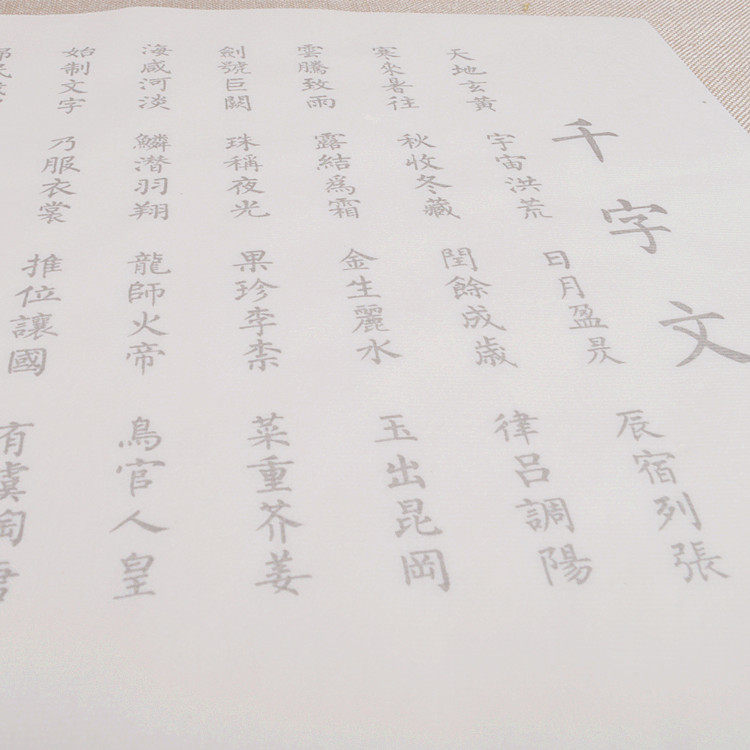 千字文
天地玄黃 宇宙洪荒 日月盈昃 辰宿列張
寒來暑往 秋收冬藏 閏餘成歲 律呂調陽
雲騰致雨 露結爲霜 金生麗水 玉出昆岡
劍號巨闕 珠稱夜光 果珍李柰 菜重芥姜
海咸河淡 鱗潜羽翔 龍師火帝 鳥官人皇
始制文字 乃服衣裳 推位讓國 有虞陶唐
民